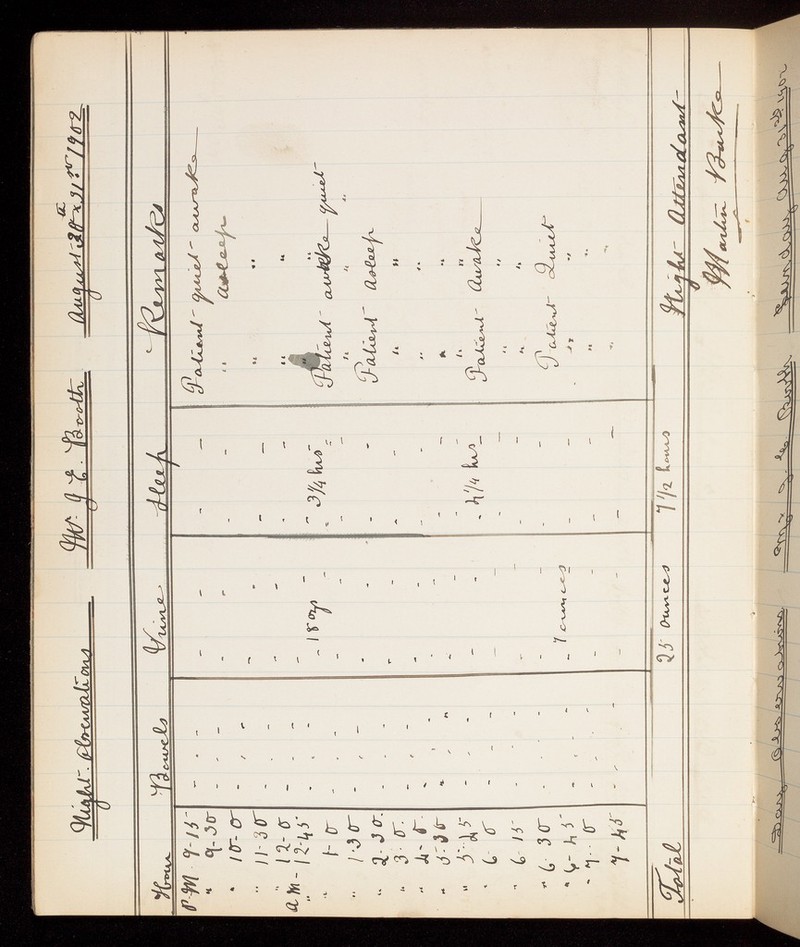 Night Observations Mr J. E. Booth August 30th & 31st 1902
Hour Bowels Urine Sleep Remarks
P.M. 9-15 - - - - - - Patient quiet awake
" 9-30 - - - - - - " asleep
" 10-0 - - - - - - " "
" 11-30 - - - - - - " "
" 12-0 - - - - - - " "
AM - 12-45 - - - 18 ozs 3¼ hrs Patient awake quiet
" 1-0 - - - - - - " " "
" 1-30 - - - - - - Patient Asleep
" 2-30 - - - - - - " "
" 3-0 - - - - - - " "
" 4-0 - - - - - - " "
" 5-30 - - - - - - " "
" 5-45 - - - - - 4¼ hrs Patient Awake
" 6-0 - - - - - - " "
" 6-15 - - - - - - " "
" 6-30 - - - - - - Patient Quiet
" 6-45 - - - 7 ounces - - " "
" 7-0 - - - - - - " "
7-45 - - - - - - " "
Total 25 ounces 7 1/2 hours Night Attendant
Martin Burke
Day Observations Mr J. E. Booth Sunday Aug 31st 1902